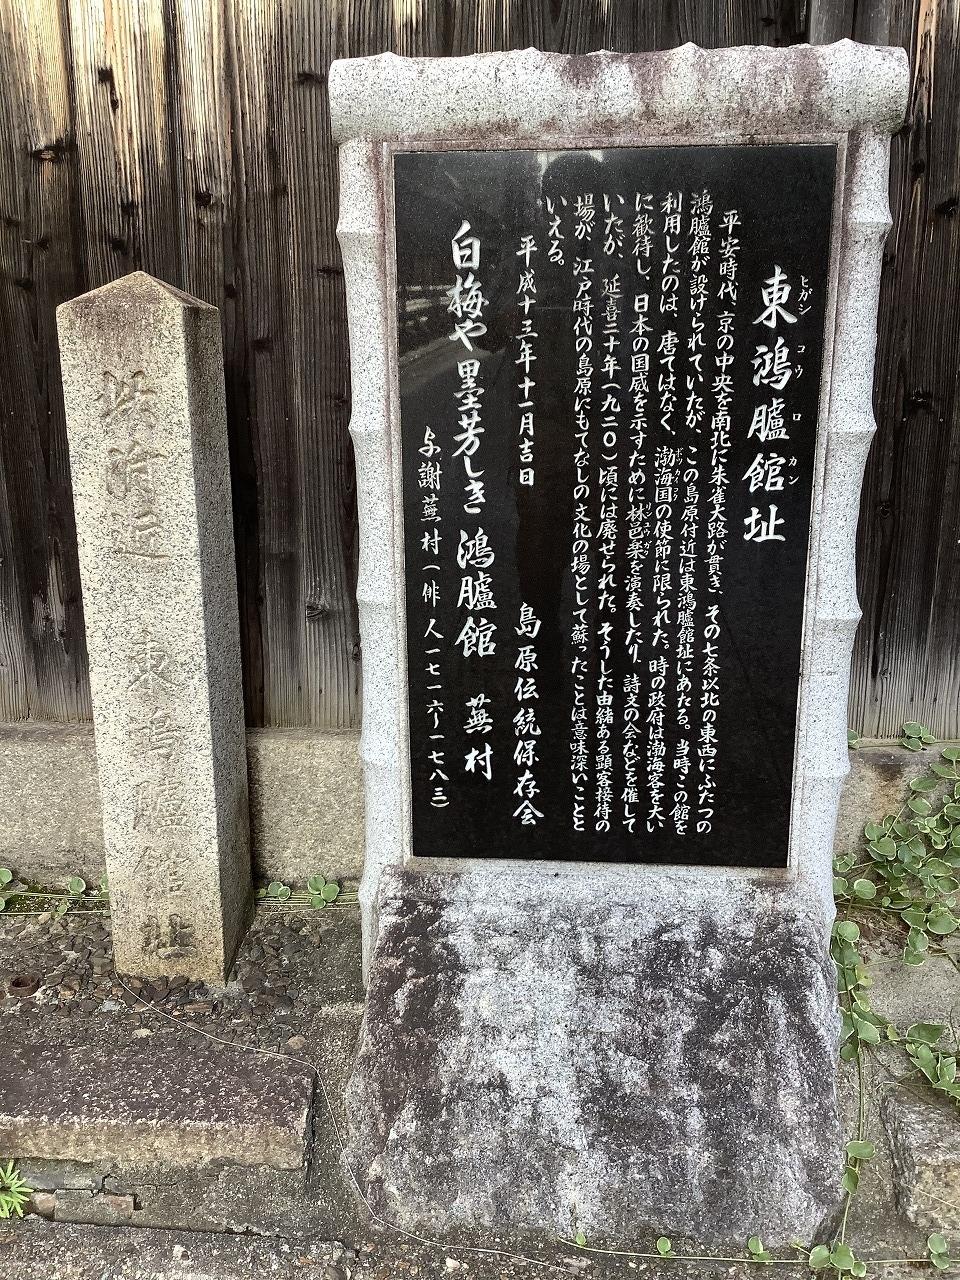 東鴻臚館址
ヒガシ コウ ロ カン
平安時代、京の中央を南北に朱雀大路が貫き、その七条以北の東西にふたつの
鴻臚館が設けられていたが、この島原付近は東鴻臚館址にあたる。当時この館を
利用したのは、唐ではなく、渤海国の使節に限られた。時の政府は渤海客を大い
ボツカイコク
に歓待し、日本の国威を示すために林邑楽を演奏したり、詩文の会などを催して
リンユウガク
いたが、延喜二十年(九二〇)頃には廃せられた。そうした由緒ある顕客接待の
場が、江戸時代の島原にもてなしの文化の場として蘇ったことは意味深いことと
いえる。
平成十三年十一月吉日 島原伝統保存会
白梅や墨芳しき鴻臚館 蕪村
与謝蕪村(俳人一七一六〜一七八三)
此附近 東鴻臚館址